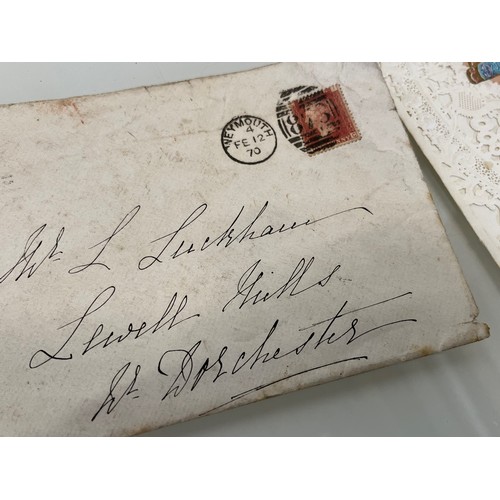 WEYMOUTH
4
FE 12
70
Mr L Luckham
Lewell Mills
Nr Dorchester